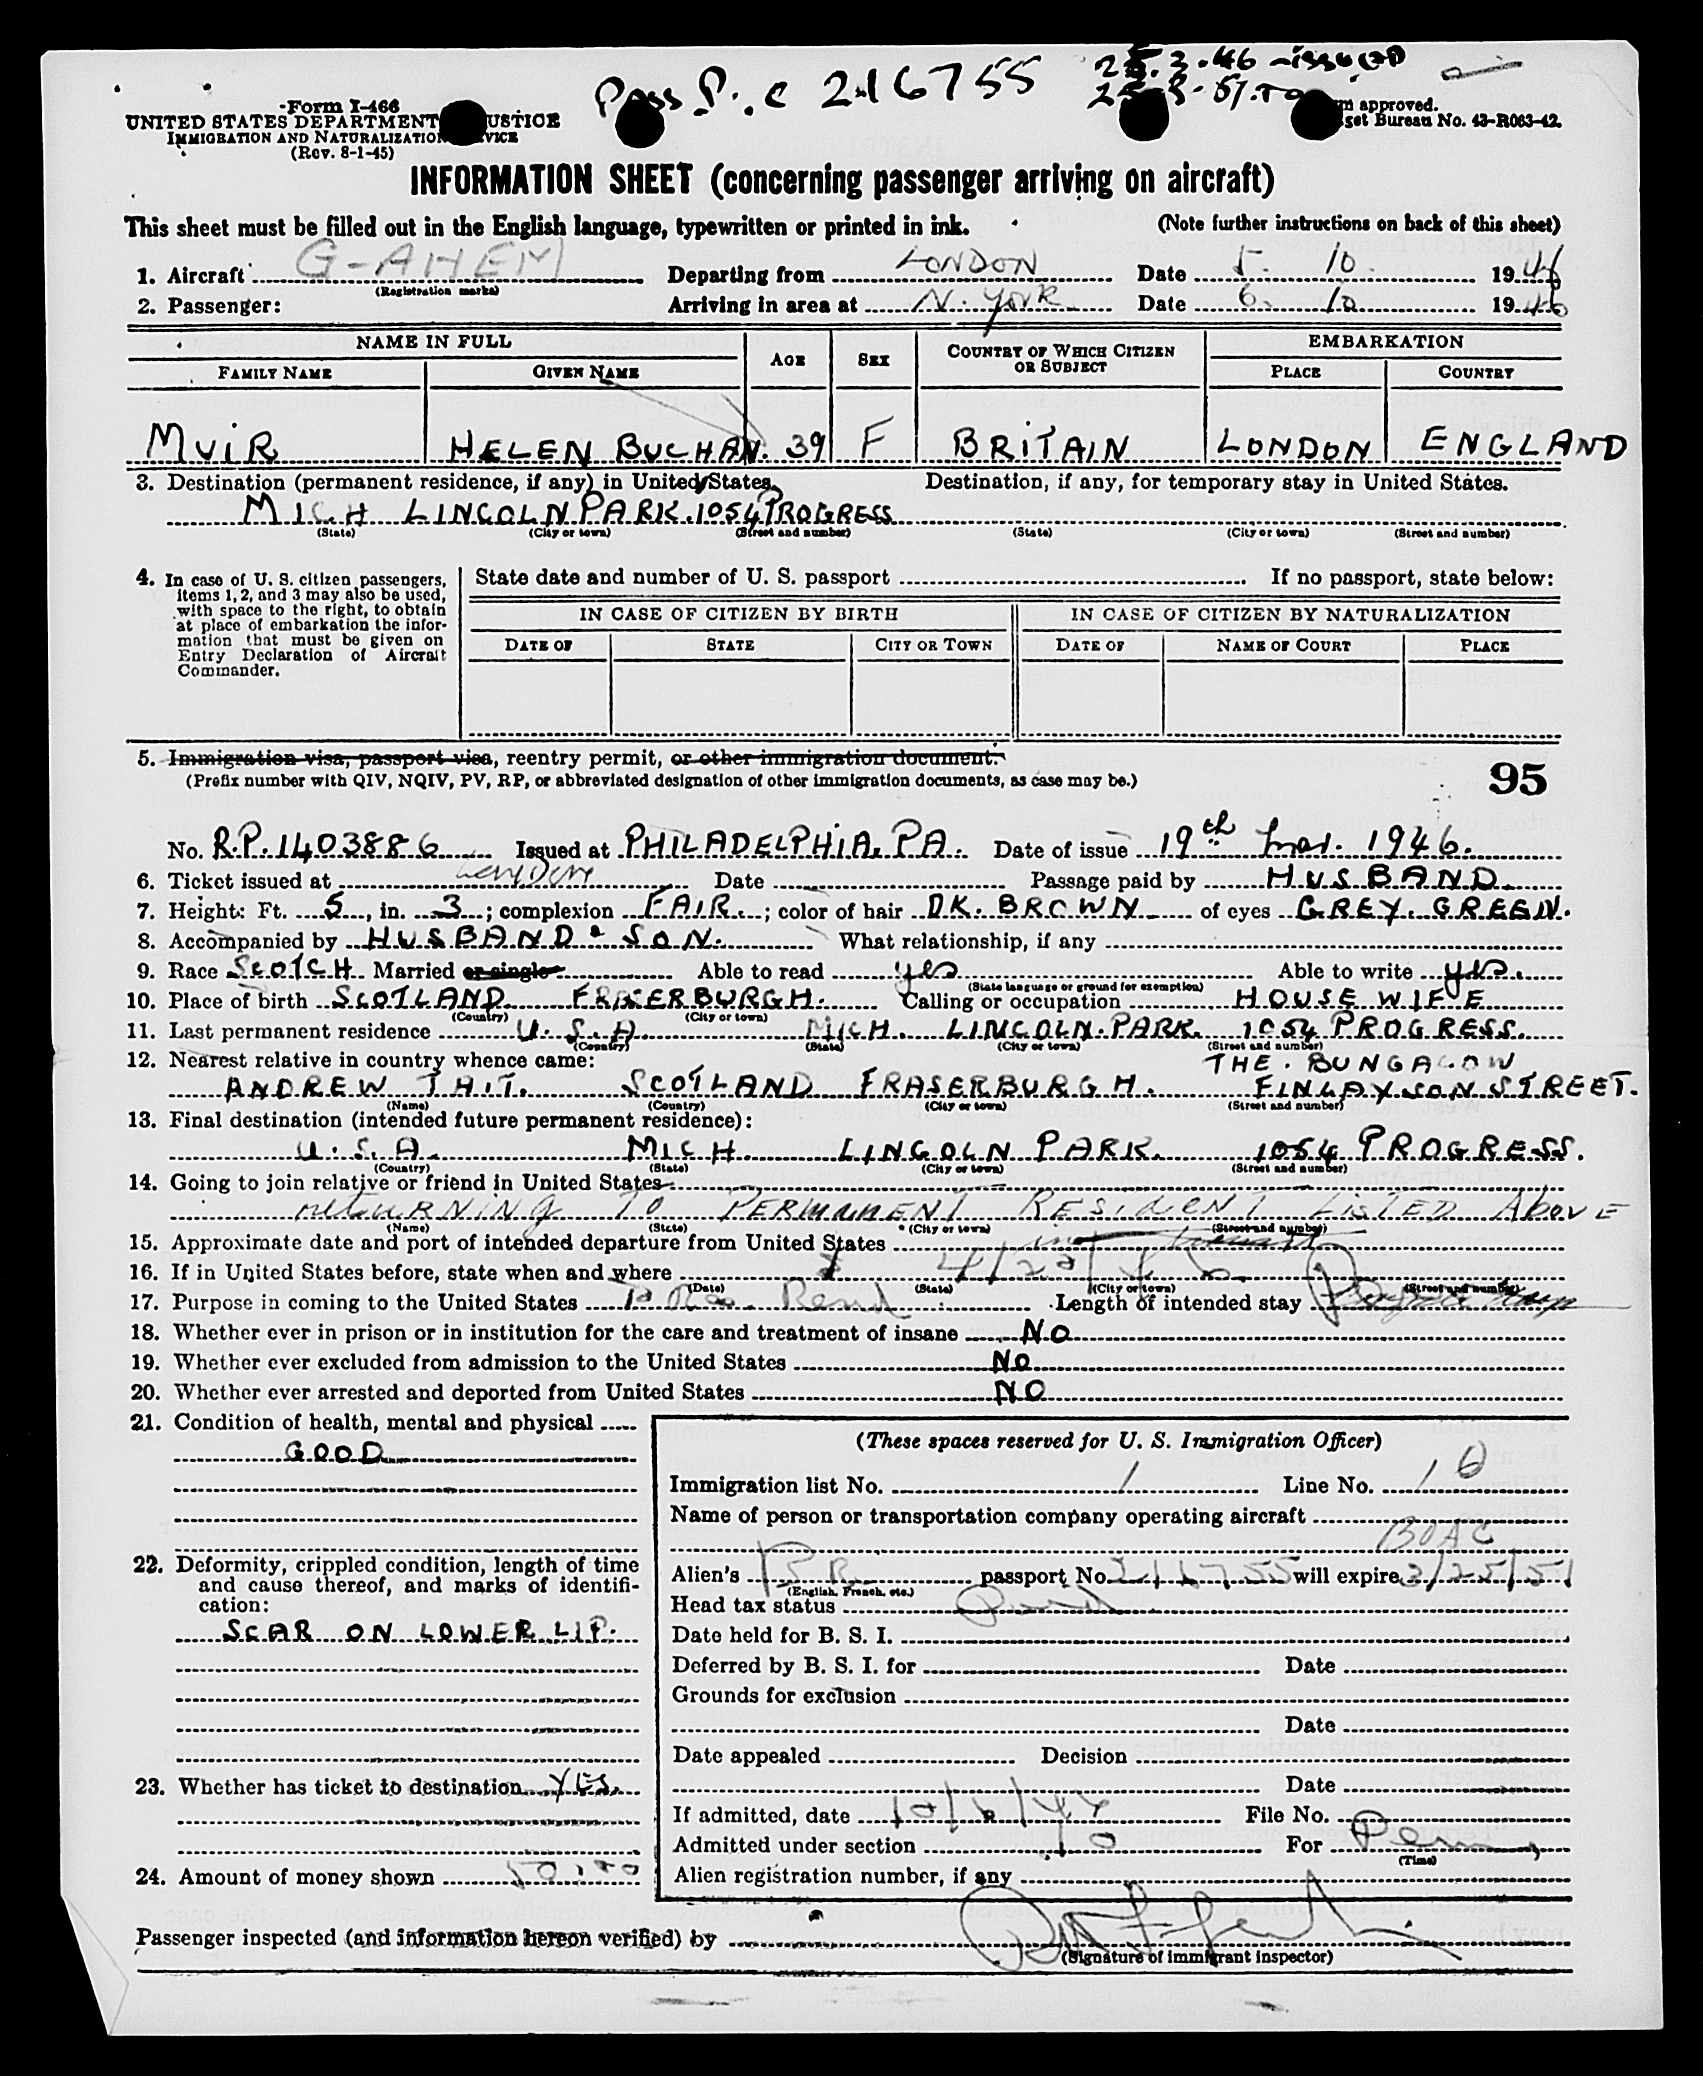 Pass P. C 216755
25.3.46 - issued
25-3-51. To
Form I-466
UNITED STATES DEPARTMENT JUSTICE
IMMIGRATION AND NATURALIZATION SERVICE
(Rev. 8-1-45)
approved.
Budget Bureau No. 43-R063-42.
INFORMATION SHEET (concerning passenger arriving on aircraft)
This sheet must be filled out in the English language, typewritten or printed in ink. (Note further instructions on back of this sheet)
1. Aircraft G-AHEM Departing from LONDON Date 5. 10. 1946
(Registration marks)
2. Passenger: Arriving in area at N. YORK Date 6. 10 1946
NAME IN FULL AGE SEX COUNTRY OF WHICH CITIZEN OR SUBJECT EMBARKATION
FAMILY NAME GIVEN NAME PLACE COUNTRY
MUIR HELEN BUCHAN. 39 F BRITAIN LONDON ENGLAND
3. Destination (permanent residence, if any) in United States. Destination, if any, for temporary stay in United States.
MICH LINCOLN PARK. 1054 PROGRESS
(State) (City or town) (Street and number) (State) (City or town) (Street and number)
4. In case of U. S. citizen passengers, items 1, 2, and 3 may also be used, with space to the right, to obtain at place of embarkation the information that must be given on Entry Declaration of Aircraft Commander.
State date and number of U. S. passport If no passport, state below:
IN CASE OF CITIZEN BY BIRTH IN CASE OF CITIZEN BY NATURALIZATION
DATE OF STATE CITY OR TOWN DATE OF NAME OF COURT PLACE
5. Immigration visa, passport visa, reentry permit, or other immigration document.
(Prefix number with QIV, NQIV, PV, RP, or abbreviated designation of other immigration documents, as case may be.)
95
No. R.P. 1403886 Issued at PHILADELPHIA, PA. Date of issue 19th Mar. 1946.
6. Ticket issued at London Date Passage paid by HUSBAND.
7. Height: Ft. 5, in. 3; complexion FAIR.; color of hair DK. BROWN of eyes GREY. GREEN.
8. Accompanied by HUSBAND & SON. What relationship, if any
9. Race SCOTCH Married or single Able to read yes Able to write yes.
(State language or ground for exemption)
10. Place of birth SCOTLAND FRASERBURGH. Calling or occupation HOUSE WIFE
(Country) (City or town)
11. Last permanent residence U.S.A. MICH. LINCOLN. PARK. 1054 PROGRESS.
(Country) (State) (City or town) (Street and number)
12. Nearest relative in country whence came: THE. BUNGALOW
ANDREW TAIT. SCOTLAND FRASERBURGH. FINLAYSON STREET.
(Name) (Country) (City or town) (Street and number)
13. Final destination (intended future permanent residence):
U.S.A. MICH. LINCOLN PARK. 1054 PROGRESS.
(Country) (State) (City or town) (Street and number)
14. Going to join relative or friend in United States
retURNiNg TO PERMANENT RESIDENT LISTED AbovE
(Name) (State) (City or town) (Street and number)
15. Approximate date and port of intended departure from United States
16. If in United States before, state when and where
(Date) (State) (City or town) (Street and number)
17. Purpose in coming to the United States To Length of intended stay
18. Whether ever in prison or in institution for the care and treatment of insane NO
19. Whether ever excluded from admission to the United States NO
20. Whether ever arrested and deported from United States NO
21. Condition of health, mental and physical
GOOD
22. Deformity, crippled condition, length of time and cause thereof, and marks of identification:
SCAR ON LOWER LIP.
23. Whether has ticket to destination YES.
24. Amount of money shown
(These spaces reserved for U. S. Immigration Officer)
Immigration list No. 1 Line No. 10
Name of person or transportation company operating aircraft
BOAC
Alien's BR passport No. 216755 will expire 3/25/51
(English, French, etc.)
Head tax status
Date held for B. S. I.
Deferred by B. S. I. for Date
Grounds for exclusion
Date
Date appealed Decision
Date
If admitted, date 10/6/46 File No.
Admitted under section 10 For Perm
(Time)
Alien registration number, if any
Passenger inspected (and information hereon verified) by
(Signature of immigrant inspector)